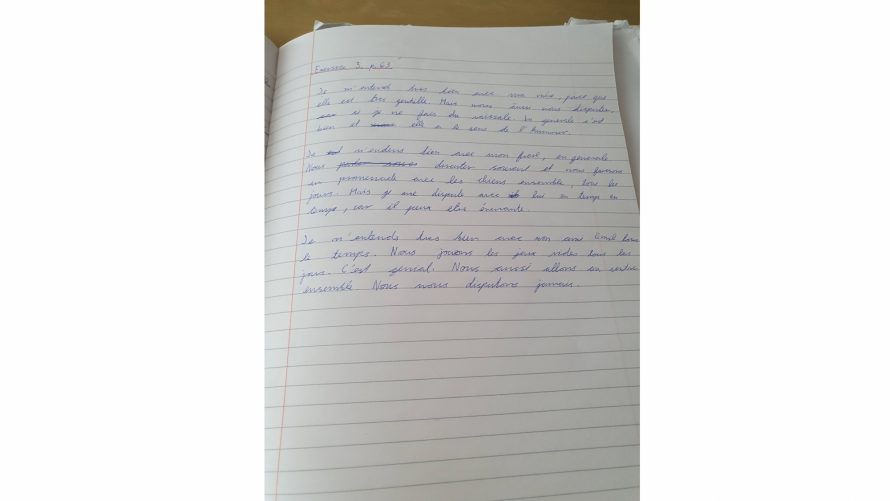 Exercice 3, p.63
Je m'entends très bien avec ma mère, parce que
elle est très gentille. Mais nous aussi nous disputer
si je ne fais du vaisselle. En generale c'est
bien et elle a le sens de l'humour.
Je m'endens bien avec mon frère, en generale
Nous discuter souvent et nous faisons
un promenade avec les chiens ensemble, tous les
jours. Mais je me dispute avec lui en temps en
temps, car il peux etre énervante.
Je m'entends très bien avec mon ami Emil tous
le temps. Nous jouons les jeux video tous les
jours. C'est genial. Nous aussi allons au centre
ensemble Nous nous disputons jamais.